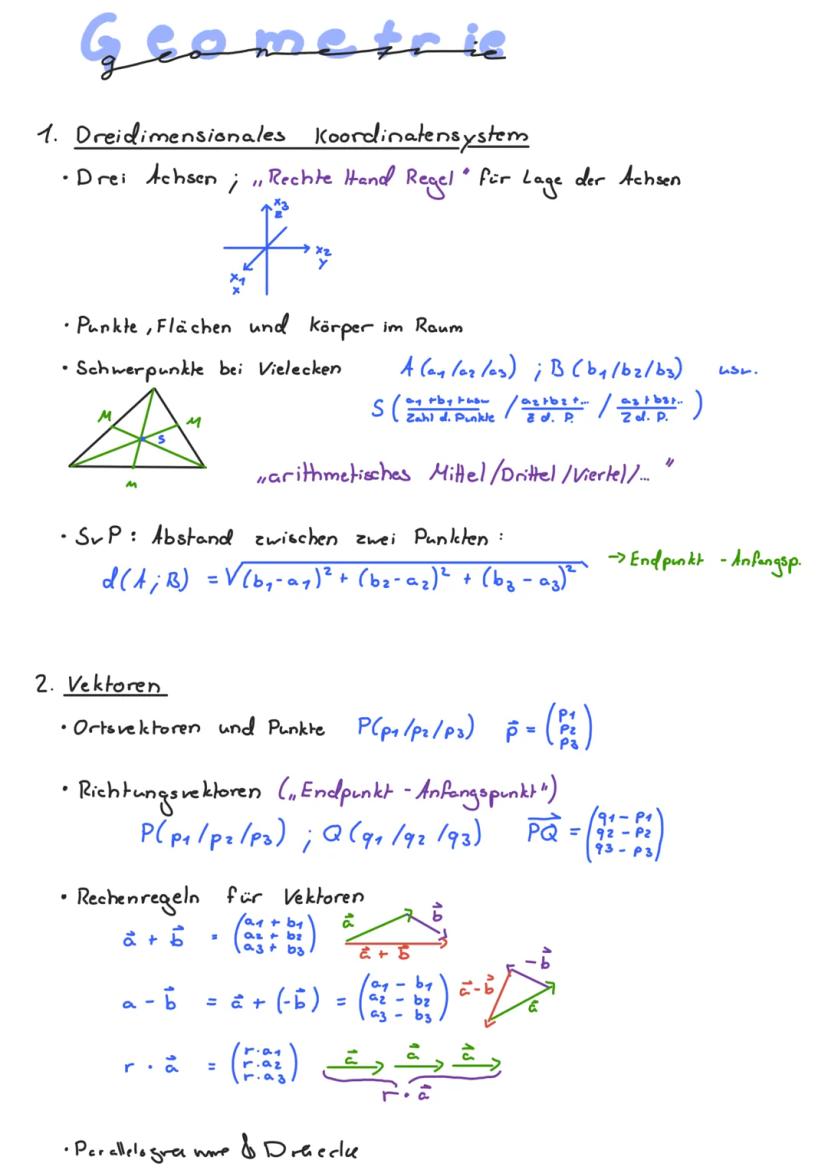 Geometrie
geometrie
1. Dreidimensionales Koordinatensystem
• Drei Achsen ; „Rechte Hand Regel" für Lage der Achsen
x3
z
x2
y
x1
x
• Punkte, Flächen und Körper im Raum
• Schwerpunkte bei Vielecken A(a1/a2/a3) ; B(b1/b2/b3) usw.
S( (a1+b1+usw)/(Zahl d. Punkte) / (a2+b2+...)/(Z d. P.) / (a3+b3+..)/(Z d. P.) )
M M S M
„arithmetisches Mittel/Drittel/Viertel/... "
• SvP : Abstand zwischen zwei Punkten :
d(A;B) = √(b1-a1)² + (b2-a2)² + (b3-a3)² → Endpunkt - Anfangsp.
2. Vektoren
• Ortsvektoren und Punkte P(p1/p2/p3) p⃗ = (p1 p2 p3)
• Richtungsvektoren („Endpunkt - Anfangspunkt")
P(p1/p2/p3) ; Q(q1/q2/q3) PQ⃗ = (q1-p1 q2-p2 q3-p3)
• Rechenregeln für Vektoren
a⃗ + b⃗ = (a1+b1 a2+b2 a3+b3) a⃗ b⃗ a⃗ + b⃗
a - b⃗ = a⃗ + (-b⃗) = (a1-b1 a2-b2 a3-b3) a⃗-b⃗ -b⃗ a⃗
r · a⃗ = (r·a1 r·a2 r·a3) a⃗ a⃗ a⃗
r · a⃗
• Parallelogramme & Dreiecke